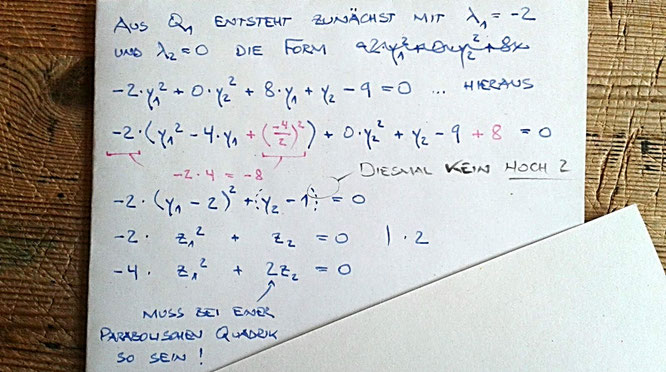 AUS Q₁ ENTSTEHT ZUNÄCHST MIT λ₁ = -2
UND λ₂ = 0 DIE FORM
-2·y₁² + 0·y₂² + 8·y₁ + y₂ - 9 = 0 ... HIERAUS
-2·(y₁² - 4·y₁ + (-4/2)²) + 0·y₂² + y₂ - 9 + 8 = 0
-2·4 = -8
DIESMAL KEIN HOCH 2
-2·(y₁ - 2)² + (y₂ - 1) = 0
-2· z₁² + z₂ = 0 | ·2
-4· z₁² + 2z₂ = 0
MUSS BEI EINER
PARABOLISCHEN QUADRIK
SO SEIN!